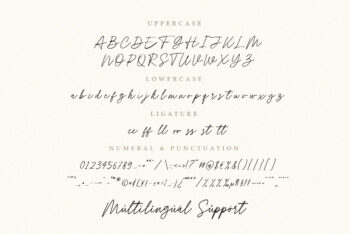 UPPERCASE
ABCDEFGHIJKLM
NOPQRSTUVWXYZ
LOWERCASE
abcdefghijklmnopqrstuvwxyz
LIGATURE
ee ff ll oo ss st tt
NUMERAL & PUNCTUATION
0123456789
Multilingual Support